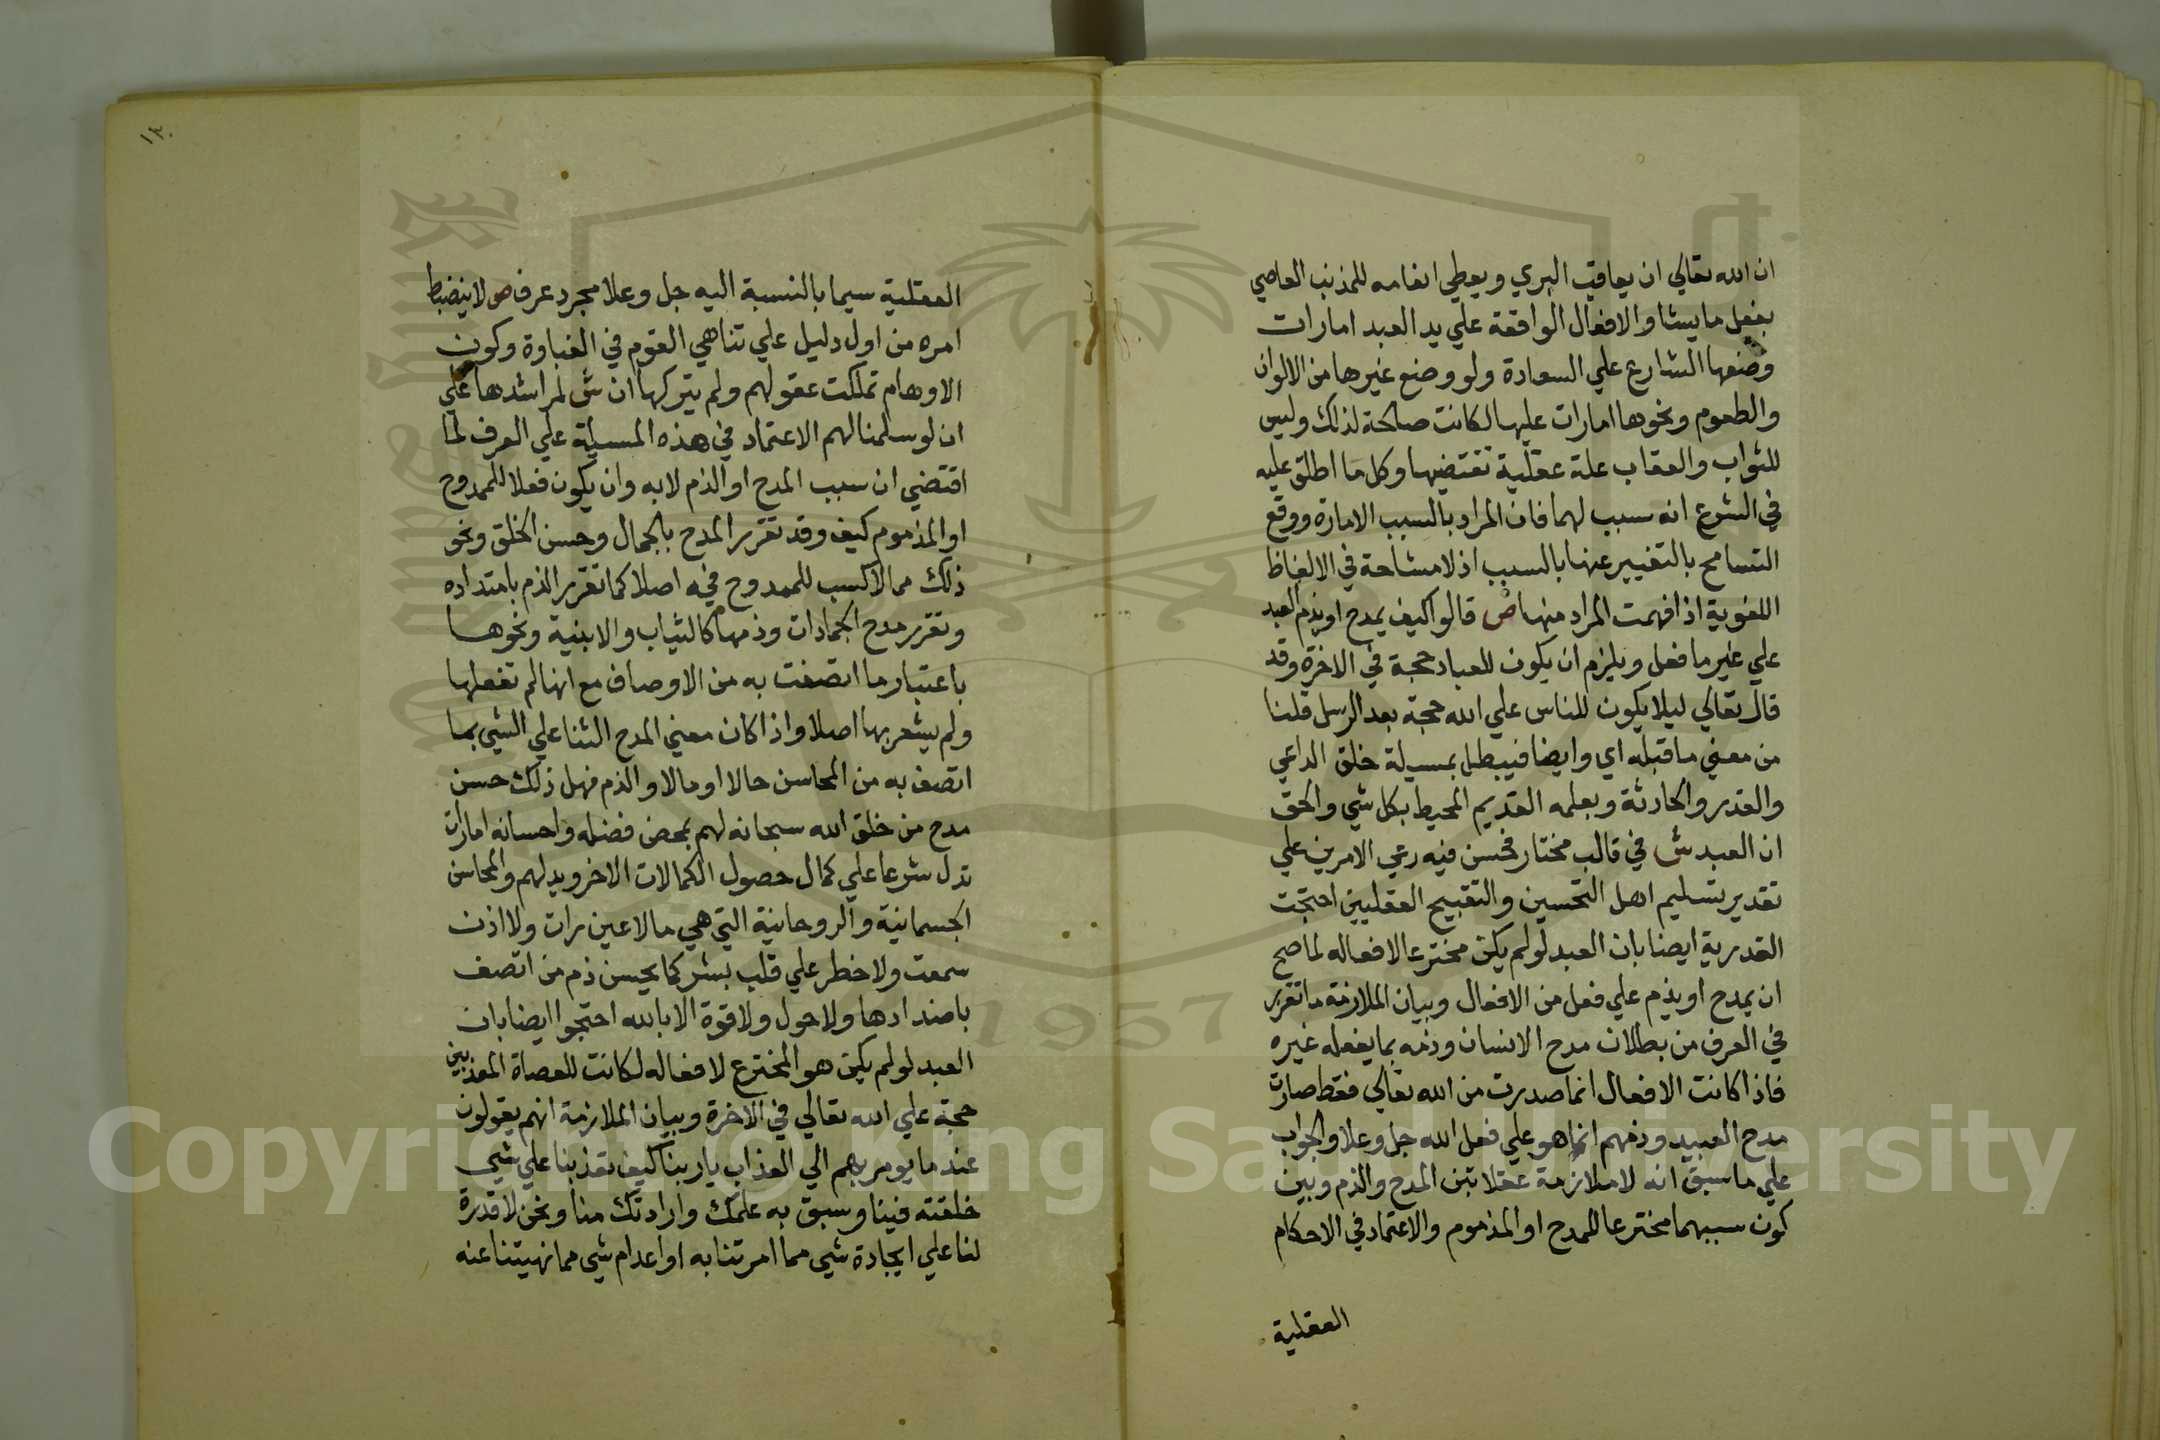 ان الله تعالي ان يعاقب البري ويعطي انعامه للمذنب العاصي
يفعل ما يشا والافعال الواقعة علي يد العبد امارات
وضعها الشارع علي السعادة ولو وضع غيرها من الالوان
والطعوم ونحوها امارات عليها لكانت صالحة لذلك وليس
للثواب والعقاب علة عقلية تقتضيها وكل ما اطلق عليه
في الشرع انه سبب لهما فان المراد بالسبب الامارة ووقع
التسامح بالتغيير عنها بالسبب اذ لا مشاحة في الالفاظ
اللغوية اذا فهمت المراد منها ص قالوا كيف يمدح او يذم العبد
علي غير ما فعل ويلزم ان يكون للعباد حجة في الاخرة وقد
قال تعالي ليلا يكون للناس علي الله حجة بعد الرسل قلنا
من معني ما قبله اي وايضا فيبطل بمسيلة خلق الداعي
والقدر والحادثة وبعلمه القديم المحيط بكل شي والحق
ان العبد ش في قالب مختار فحسن فيه رعي الامرين علي
تقدير تسليم اهل التحسين والتقبيح العقليين احتجت
القدرية ايضا بان العبد لو لم يكن مخترعا لافعاله لما صح
ان يمدح او يذم علي فعل من الافعال وبيان الملازمة ما تقرر
في العرف من بطلان مدح الانسان وذمه بما يفعله غيره
فاذا كانت الافعال انما صدرت من الله تعالي فقط صارت
مدح العبيد وذمهم انما هو علي فعل الله جل وعلا والجواب
علي ما سبق انه لا ملازمة عقلا بين المدح والذم وبين
كون سببهما مخترعا للمدح او المذموم والاعتماد في الاحكام
العقلية
١٣٠
العقلية سيما بالنسبة اليه جل وعلا مجرد عرف ص لا ينضبط
امره من اول دليل علي تناهي القوم في الغباوة وكون
الاوهام تملكت عقولهم ولم يتركها ان ش لمراشدها علي
ان لو سلمنا لهم الاعتماد في هذه المسيلة علي العرف لما
اقتضي ان سبب المدح او الذم لا به وان يكون فعلا للممدوح
او المذموم كيف وقد تقرر المدح بالجمال وحسن الخلق ونحو
ذلك مما لا كسب للممدوح فيه اصلا كما تقرر الذم بامتداده
وتقرر مدح الجمادات وذمها كالثياب والابنية ونحوها
باعتبار ما اتصفت به من الاوصاف مع انها لم تفعلها
ولم يشعر بها اصلا واذا كان معني المدح الثنا علي الشي بما
اتصف به من المحاسن حالا او مالا والذم فهل ذلك حسن
مدح من خلق الله سبحانه لهم بمحض فضله واحسانه امارات
تدل شرعا علي كمال حصول الكمالات الاخرويه لهم والمحاسن
الجسمانية والروحانية التي هي ما لا عين رات ولا اذن
سمعت ولا خطر علي قلب بشر كما يحسن ذم من اتصف
باضدادها ولا حول ولا قوة الا بالله احتجوا ايضا بان
العبد لو لم يكن هو المخترع لافعاله لكانت للعصاة المعذبين
حجة علي الله تعالي في الاخرة وبيان الملازمة انهم يقولون
عند ما يومر بهم الي العذاب يا ربنا كيف تعذبنا علي شي
خلقته فينا وسبق به علمك وارادتك منا ونحن لا قدرة
لنا علي ايجادة شي مما امرتنا به او اعدام شي مما نهيتنا عنه
King Saud University
1957
Copyright © King Saud University